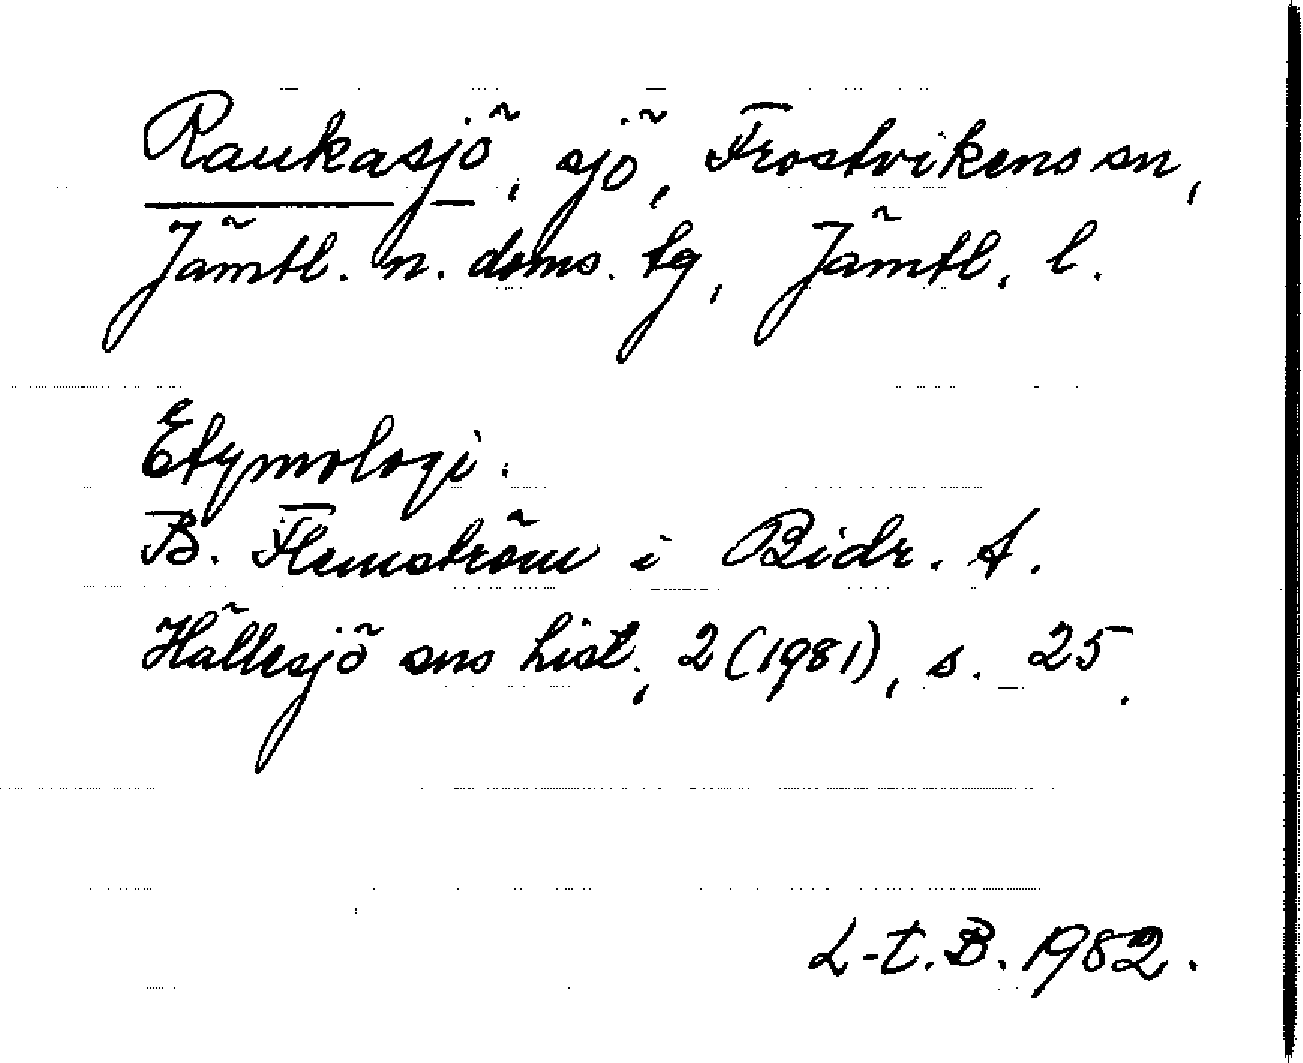 Raukasjö, sjö, Frostvikens sn,
Jämtl. n. doms. tg, Jämtl. l.
Etymologi.
B. Flemström i Bidr. t.
Hällesjö sns hist., 2 (1981), s. 25.
L-t. B. 1982.